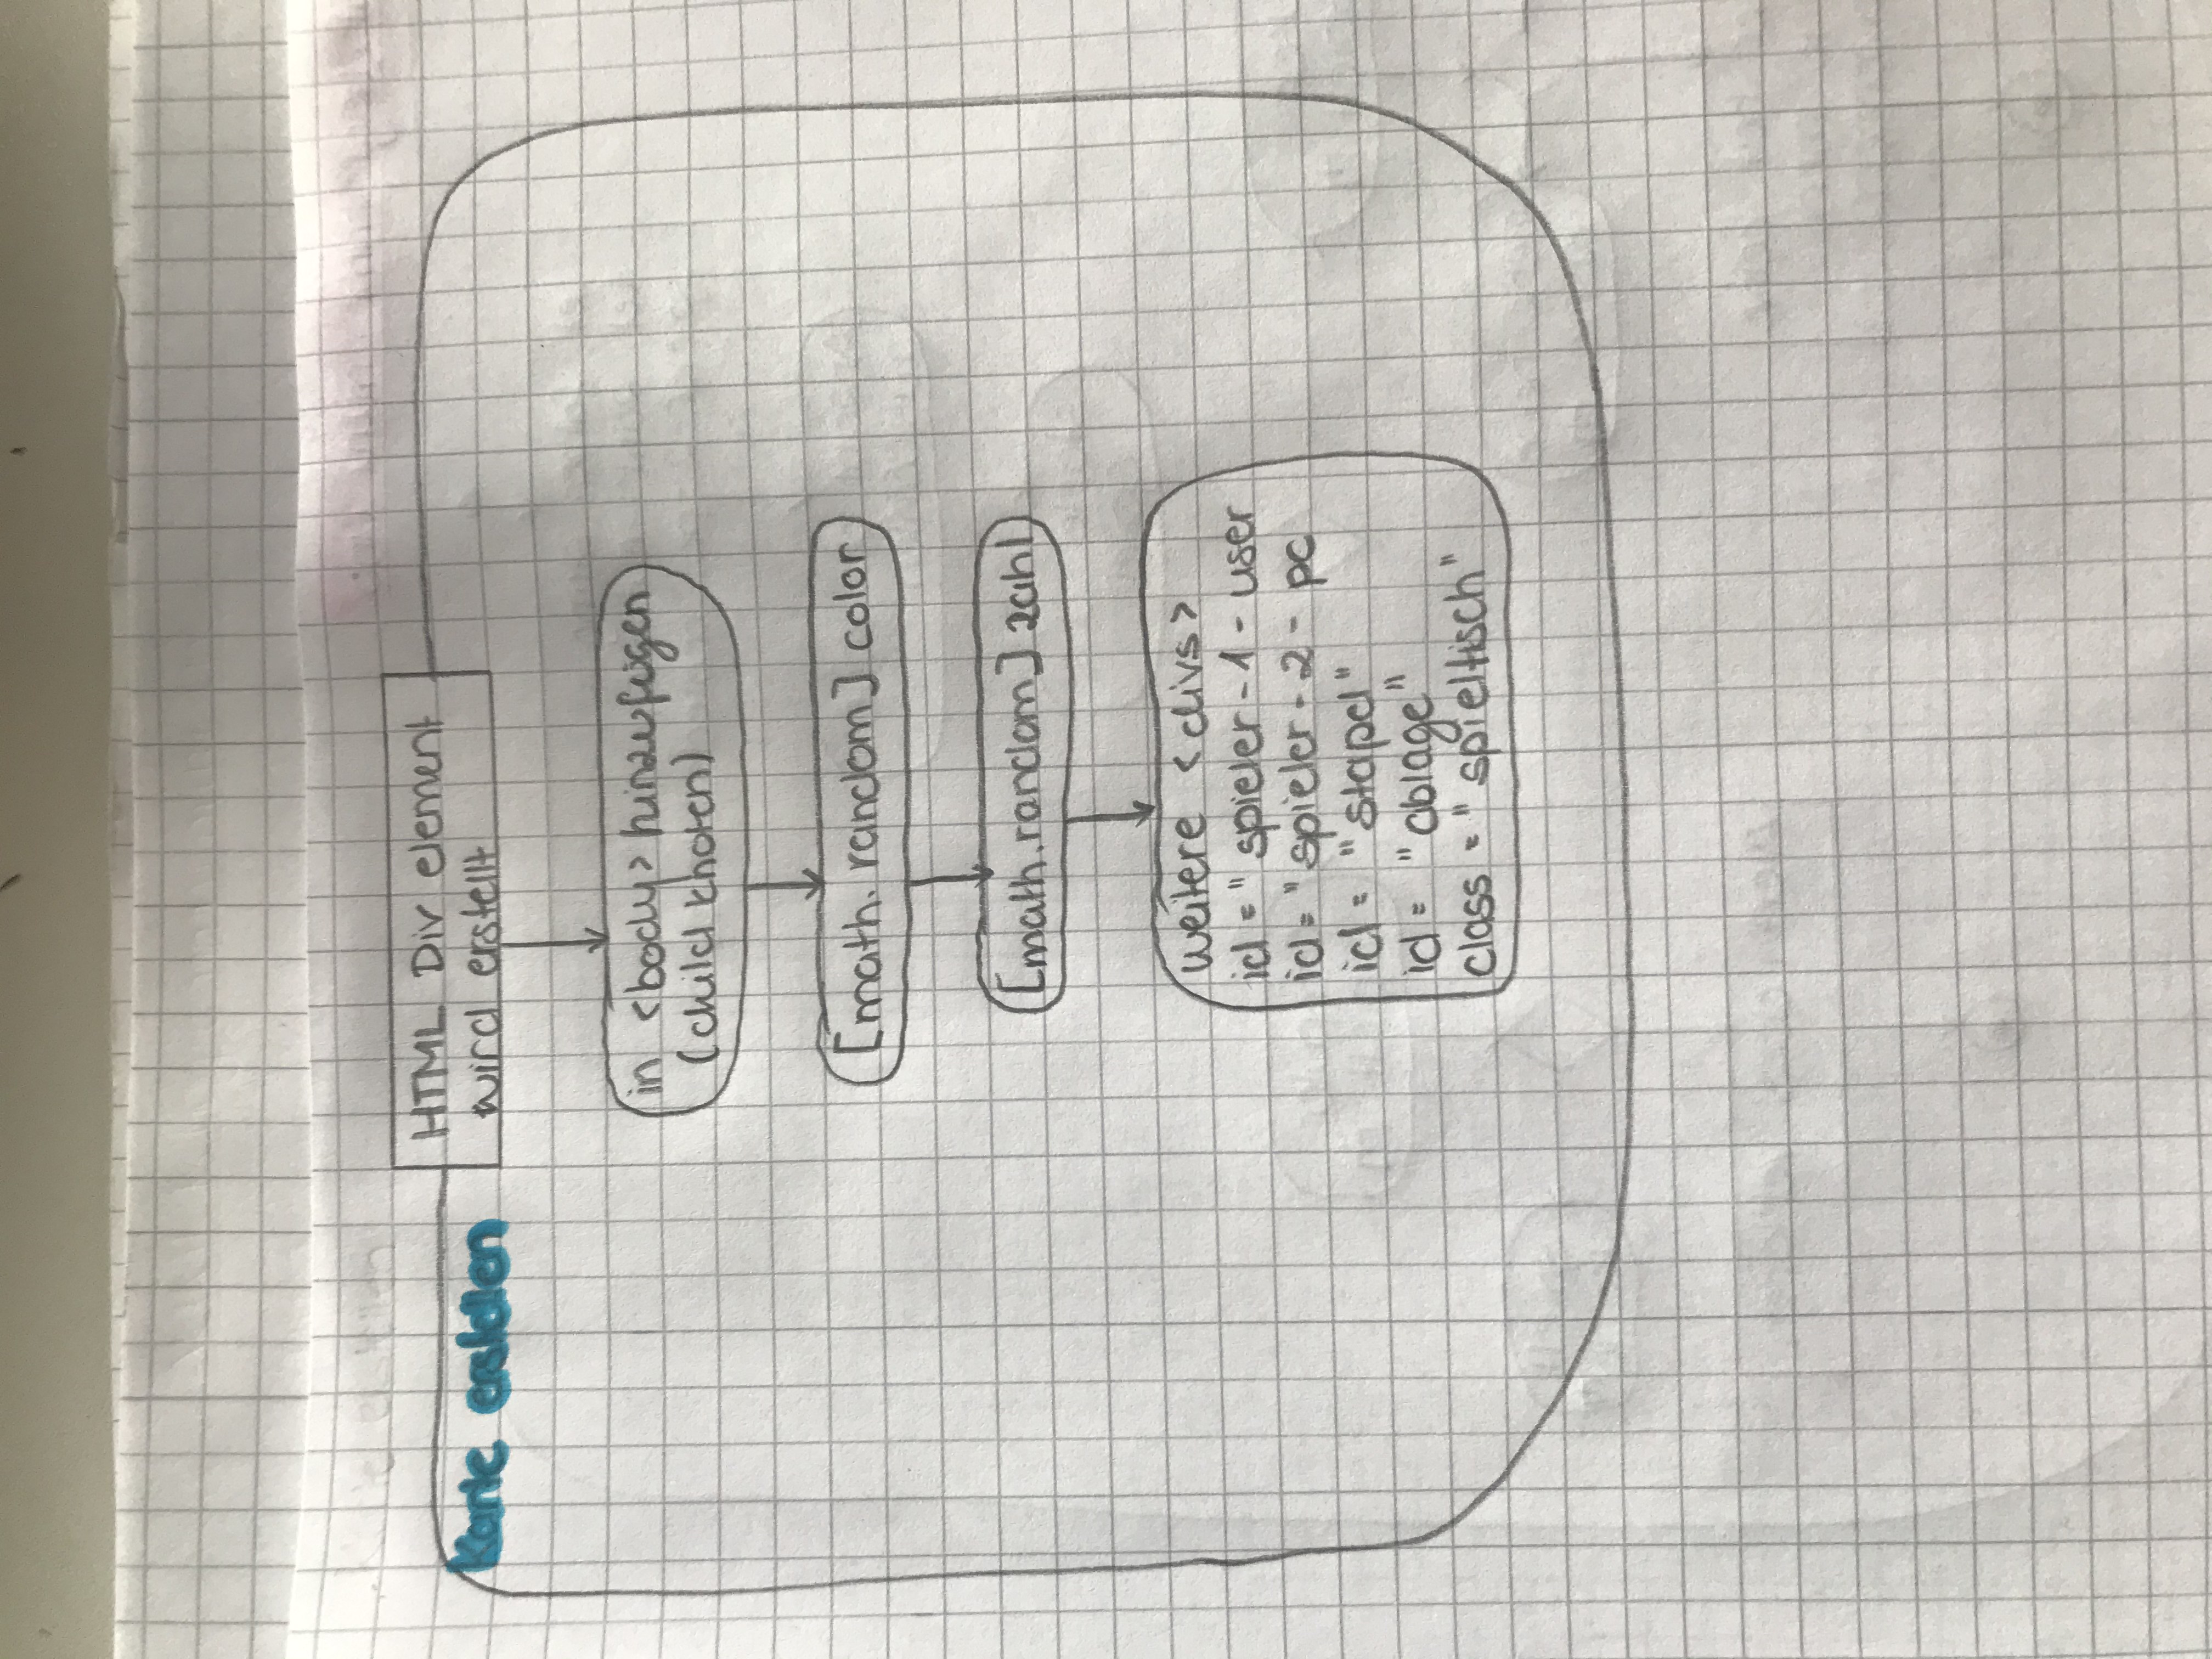 HTML Div element
wird erstellt
Karte erstellen
in <body> hinzufügen
(child knoten)
[math. random] color
[math.random] zahl
weitere <divs>
id = "spieler-1-user
id = "spieler-2-pc
id = "stapel"
id = "ablage"
class = "spieltisch"